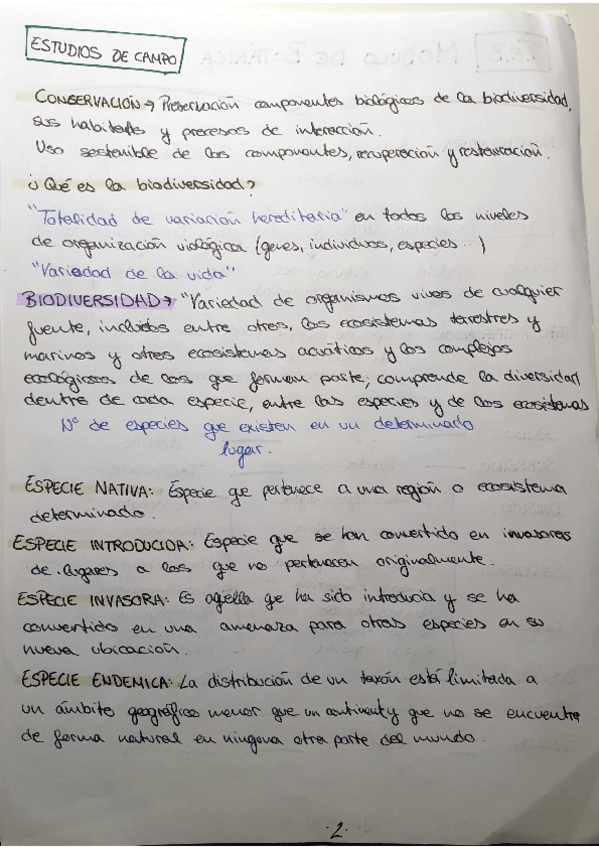 ESTUDIOS DE CAMPO
CONSERVACIÓN → Preservación componentes biológicos de la biodiversidad,
sus habitats y procesos de interacción.
Uso sostenible de los componentes, recuperación y restauración.
¿Qué es la biodiversidad?
"Totalidad de variación hereditaria" en todos los niveles
de organización viológica (genes, individuos, especies...)
"Variedad de la vida"
BIODIVERSIDAD → "Variedad de organismos vivos de cualquier
fuente, incluidos entre otros, los ecosistemas terrestres y
marinos y otros ecosistemas acuáticos y los complejos
ecológicos de los que forman parte; comprende la diversidad
dentro de cada especie, entre las especies y de los ecosistemas
Nº de especies que existen en un determinado
lugar.
ESPECIE NATIVA: Especie qe pertenece a una región o ecosistema
determinado.
ESPECIE INTRODUCIDA: Especie que se han convertido en invasores
de lugares a los que no pertenecen originalmente.
ESPECIE INVASORA: Es aqella qe ha sido introducia y se ha
convertido en una amenaza para otras especies en su
nueva ubicación.
ESPECIE ENDEMICA: La distribución de un taxón está limitada a
un ámbito geográfico menor que un continent y que no se encuentre
de forma natural en ninguna otra parte del mundo.
2.